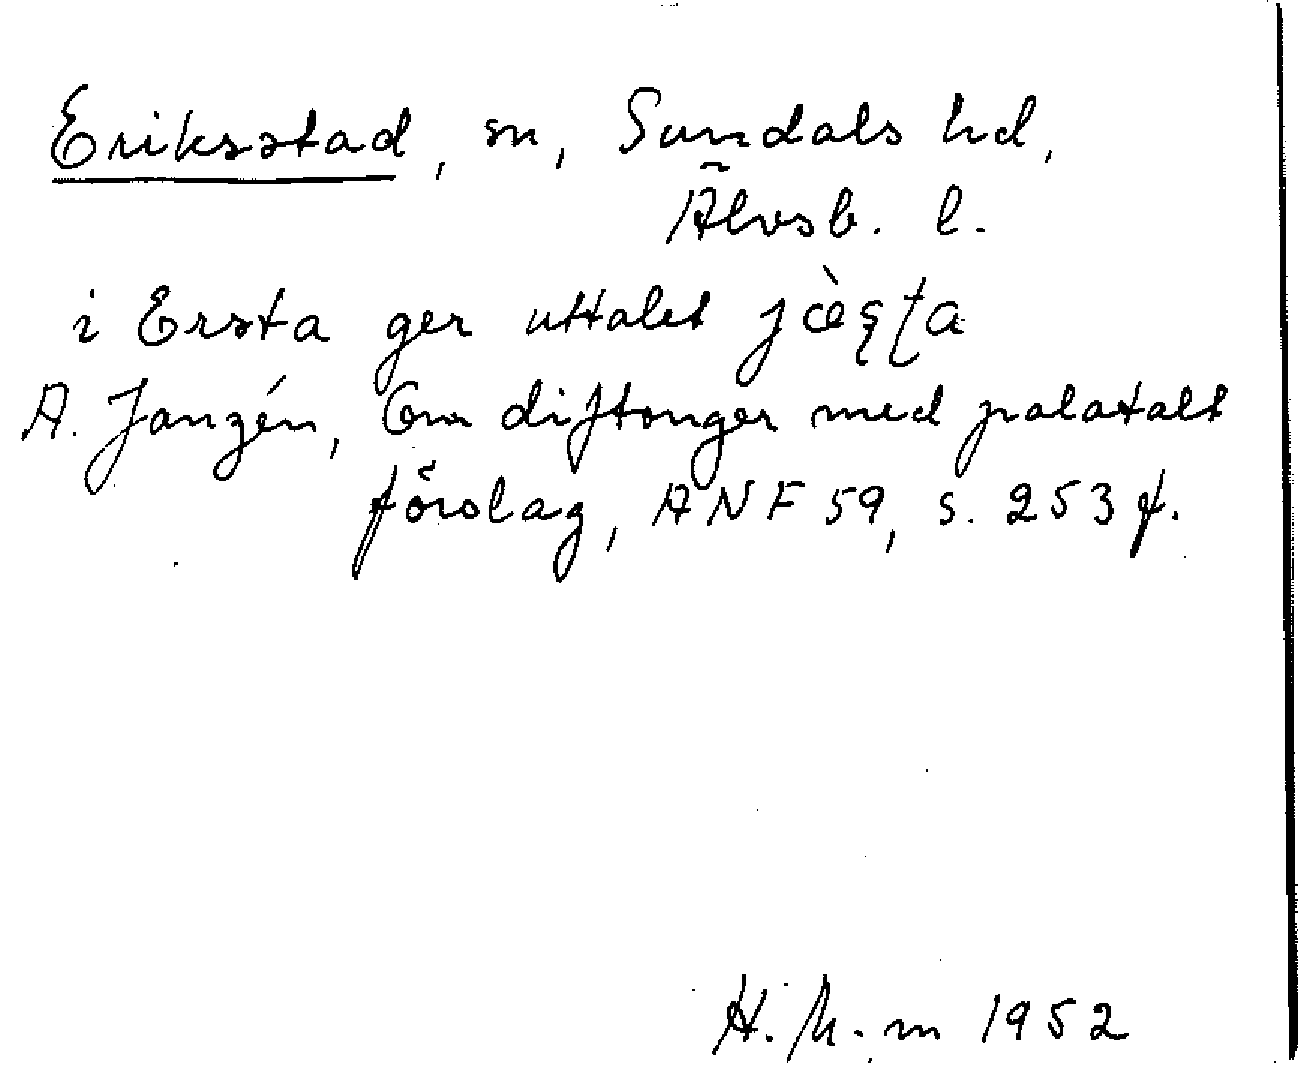 Eriksstad, sn, Sundals hd,
Älvsb. l.
i Ersta ger uttalet jæ̀ʂʈa
A. Janzén, Om diftonger med palatalt
förslag, ANF 59, s. 253 f.
H. M. m 1952